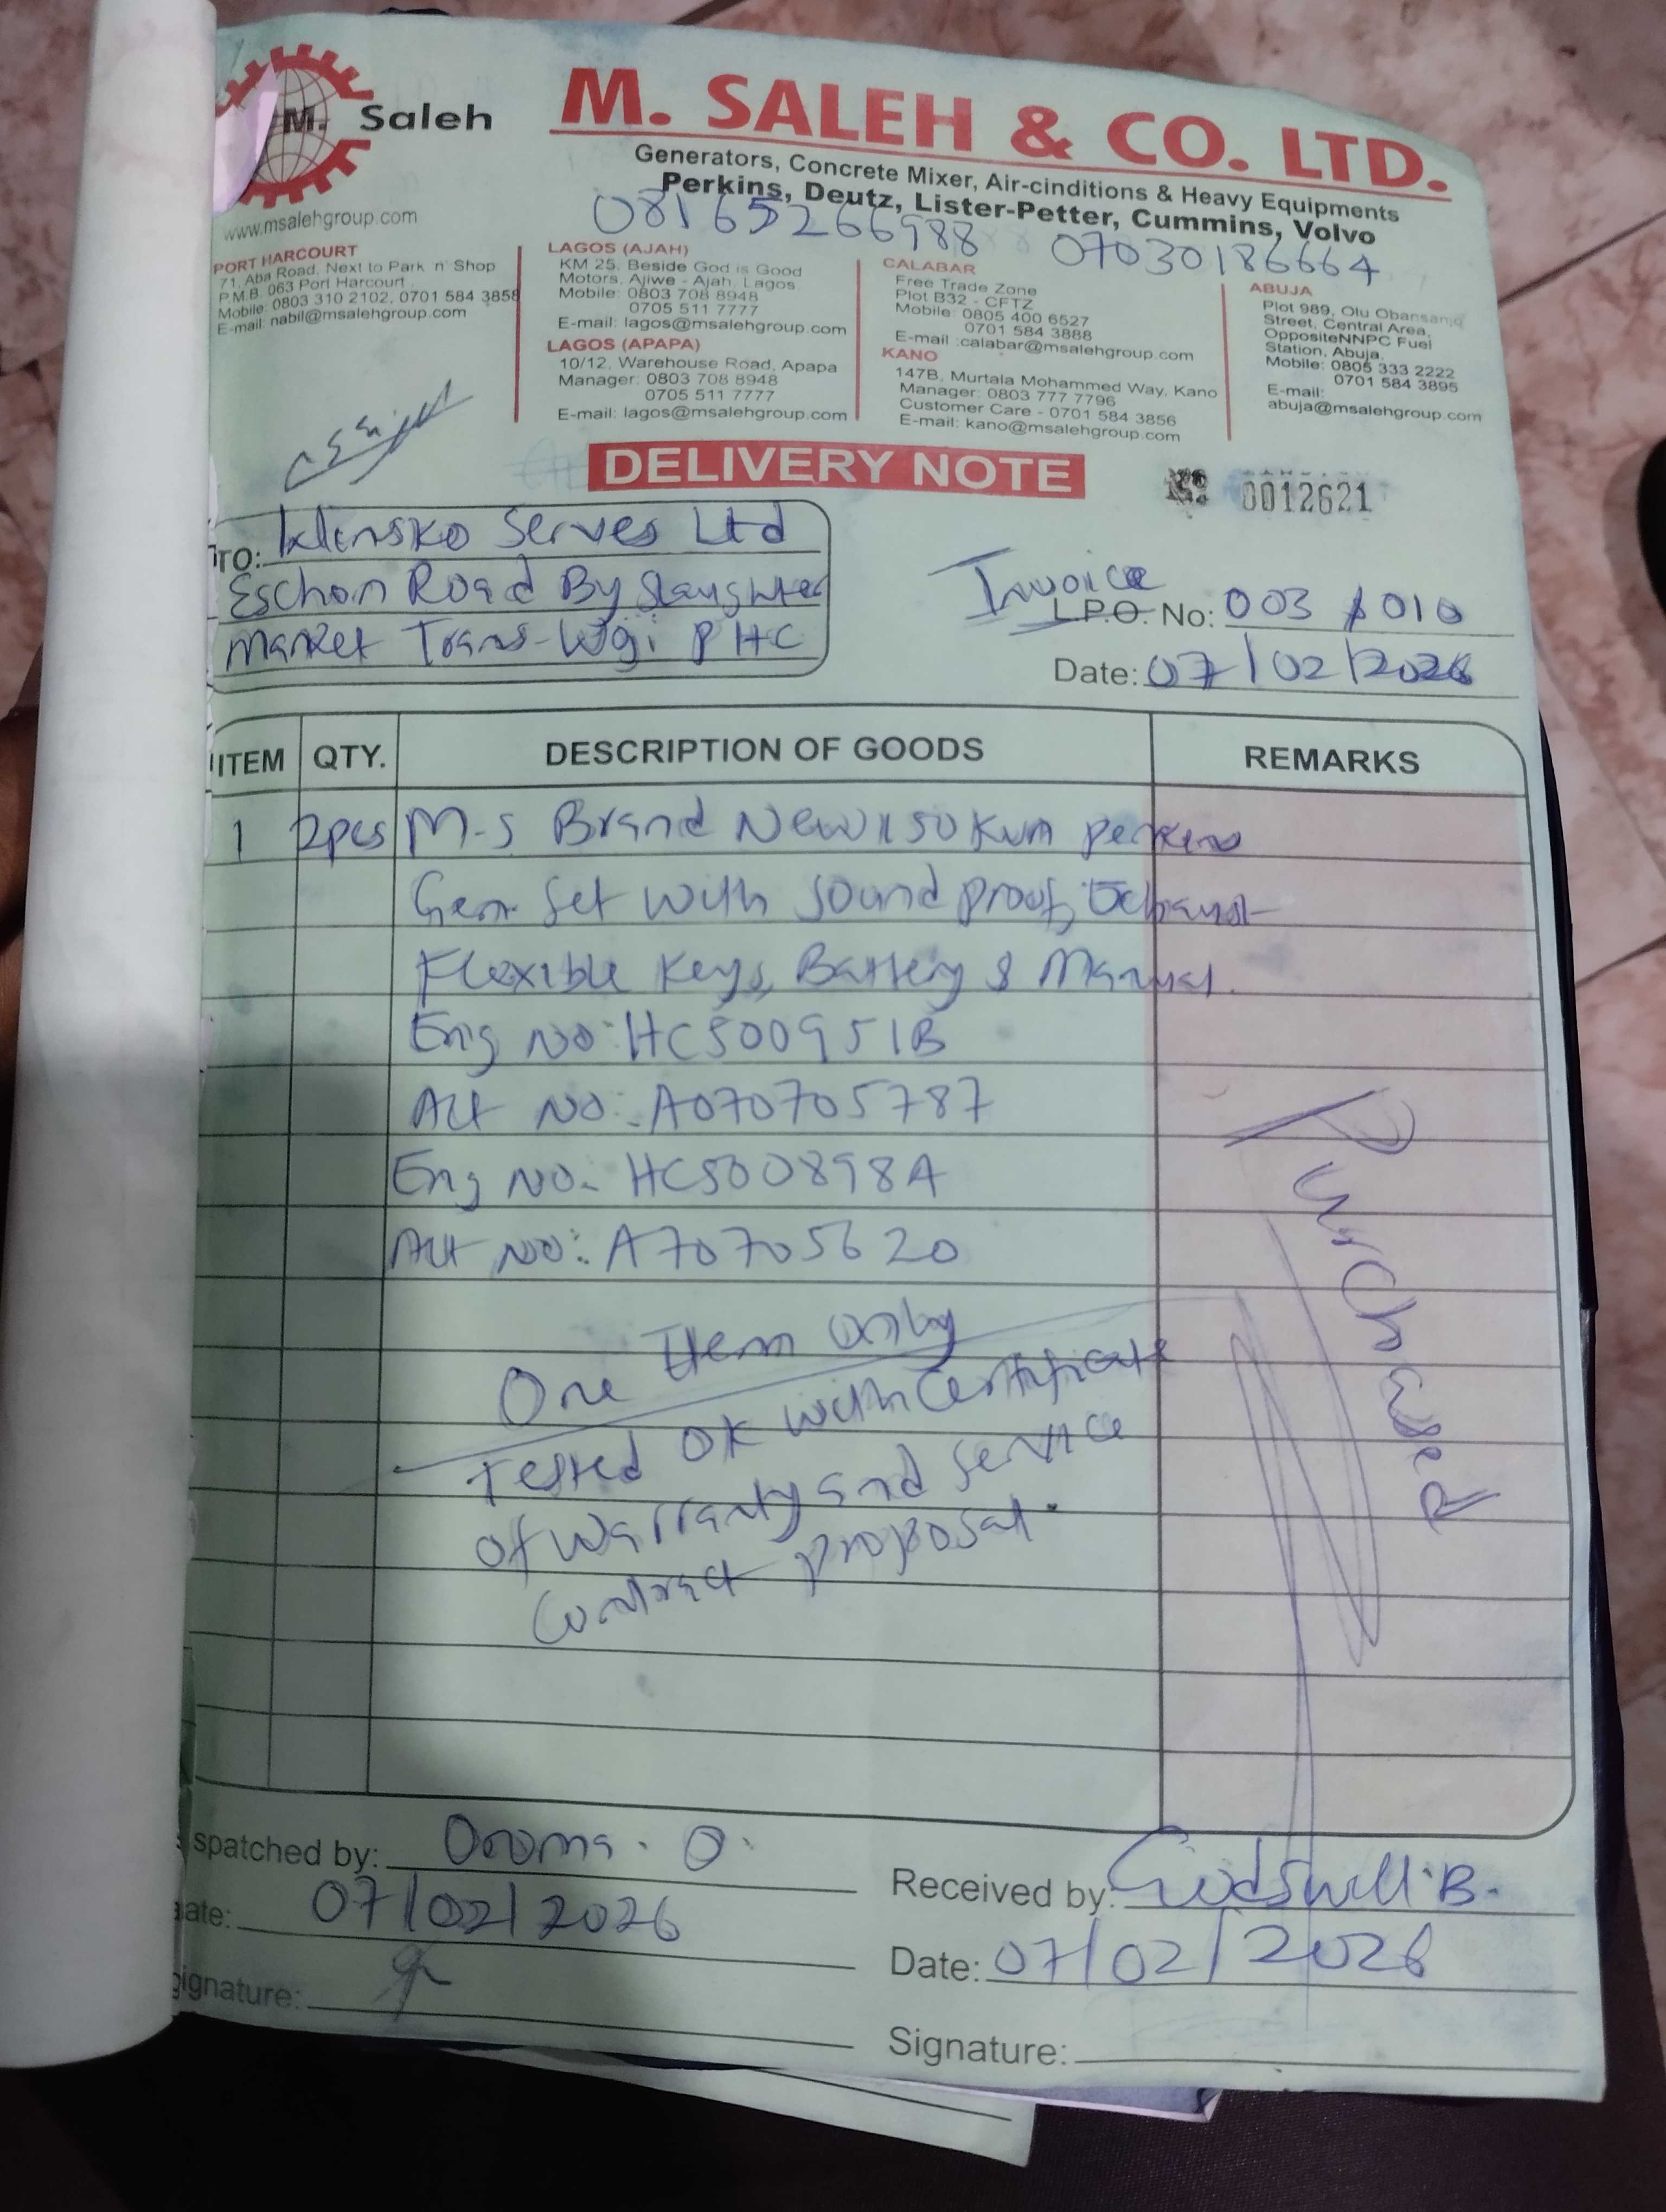 M. Saleh
www.msalehgroup.com
M. SALEH & CO. LTD.
Generators, Concrete Mixer, Air-cinditions & Heavy Equipments
Perkins, Deutz, Lister-Petter, Cummins, Volvo
08165266988 07030186664
PORT HARCOURT
71, Aba Road, Next to Park n' Shop
P.M.B. 063 Port Harcourt
Mobile: 0803 310 2102, 0701 584 3858
E-mail: nabil@msalehgroup.com
LAGOS (AJAH)
KM 25, Beside God is Good
Motors, Ajiwe - Ajah, Lagos
Mobile: 0803 708 8948
0705 511 7777
E-mail: lagos@msalehgroup.com
LAGOS (APAPA)
10/12, Warehouse Road, Apapa
Manager: 0803 708 8948
0705 511 7777
E-mail: lagos@msalehgroup.com
CALABAR
Free Trade Zone
Plot B32 - CFTZ
Mobile: 0805 400 6527
0701 584 3888
E-mail :calabar@msalehgroup.com
KANO
147B, Murtala Mohammed Way, Kano
Manager: 0803 777 7796
Customer Care - 0701 584 3856
E-mail: kano@msalehgroup.com
ABUJA
Plot 989, Olu Obansanjo
Street, Central Area,
OppositeNNPC Fuel
Station, Abuja.
Mobile: 0805 333 2222
0701 584 3895
E-mail:
abuja@msalehgroup.com
DELIVERY NOTE
No. 0012621
TO: Klinsko Serves Ltd
Road By Slaughter
Market Trans- PHC
Invoice
L.P.O. No: 003 / 010
Date: 07/02/2026
ITEM QTY. DESCRIPTION OF GOODS REMARKS
1 2pcs M-S Brand New 150 KVA Perkins
Gen Set with Sound proof, Exhaust
Flexible Keys, Battery & Manual.
Eng No: HC500951B
Alt No: A070705787
Eng No: HC500898A
Alt No: A70705620
One Item Only
Tested OK with Certificate
of Warranty and Service
Contract proposal.
Purchased
spatched by: O.
ate: 07/02/2026
ignature:
Received by: Godswill B.
Date: 07/02/2026
Signature: